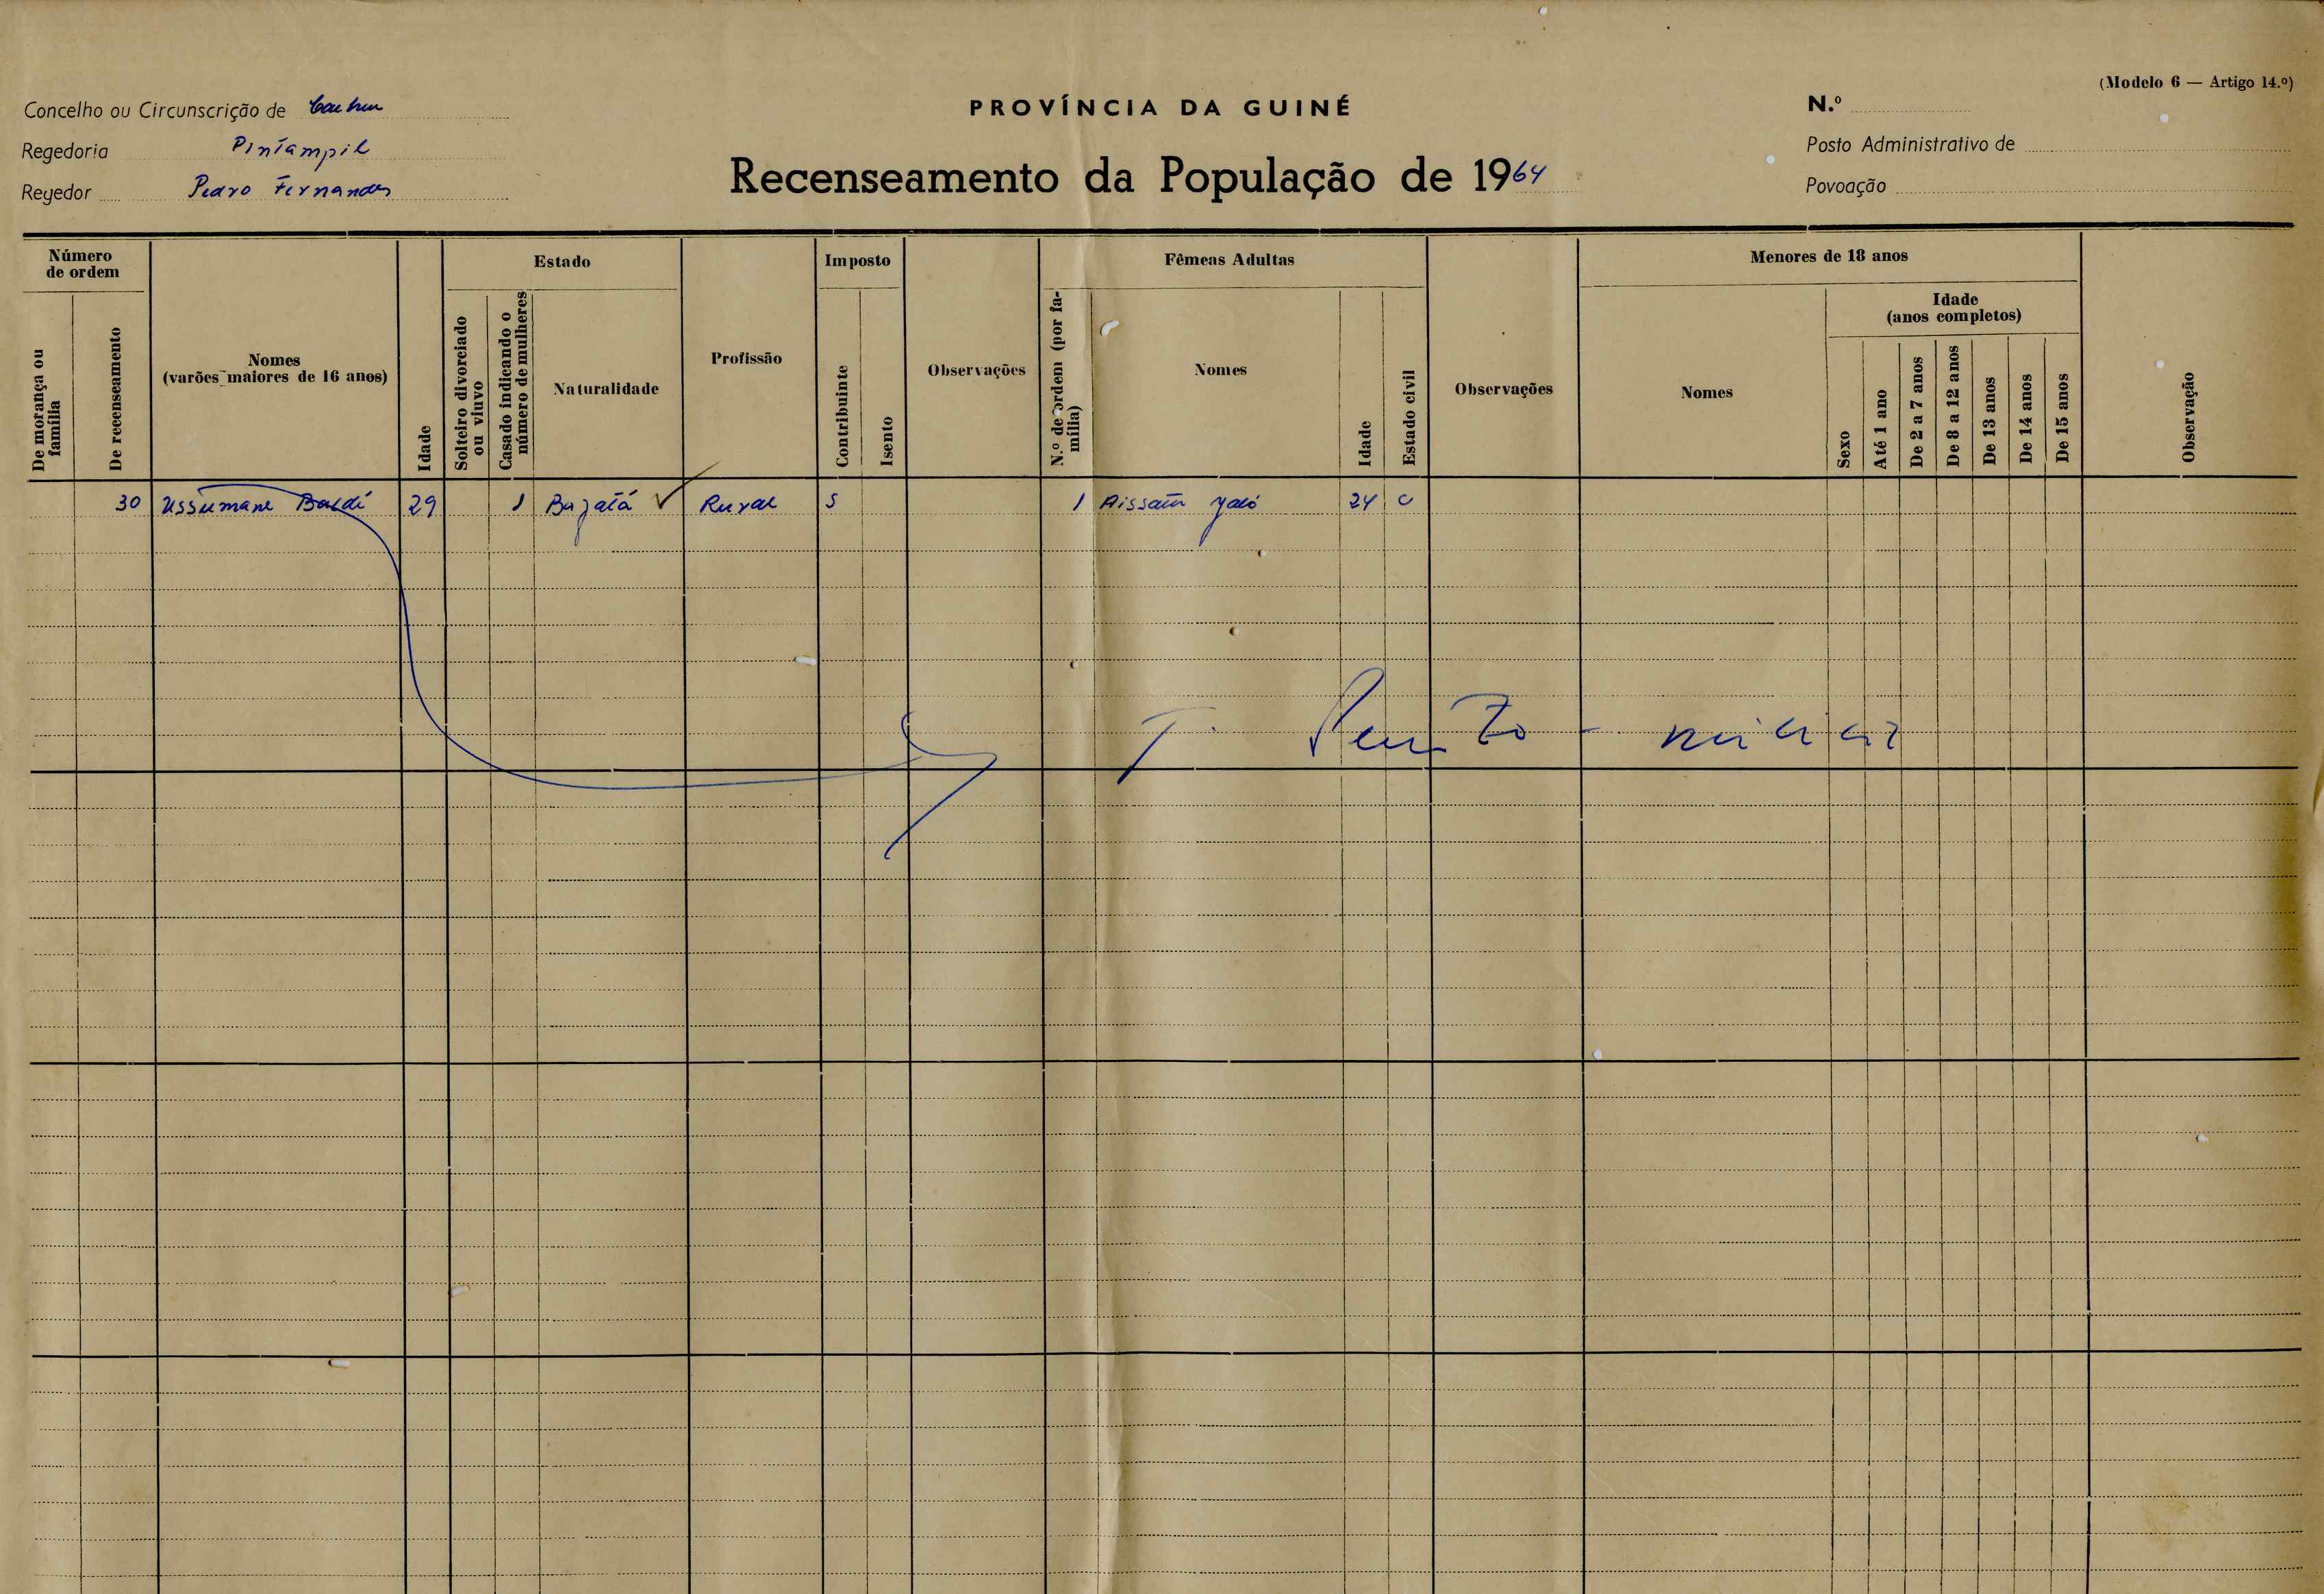 (Modelo 6 — Artigo 14.º)
Concelho ou Circunscrição de
PROVÍNCIA DA GUINÉ
N.º
Regedoria Pintampil
Posto Administrativo de
Recenseamento da População de 1964
Regedor Pedro Fernandes
Povoação
Número de ordem
Estado
Imposto
Fêmeas Adultas
Menores de 18 anos
Idade
(anos completos)
De morança ou família
De recenseamento
Nomes
(varões maiores de 16 anos)
Idade
Solteiro divorciado ou viuvo
Casado indicando o número de mulheres
Naturalidade
Profissão
Contribuinte
Isento
Observações
N.º de ordem (por família)
Nomes
Idade
Estado civil
Observações
Nomes
Sexo
Até 1 ano
De 2 a 7 anos
De 8 a 12 anos
De 13 anos
De 14 anos
De 15 anos
Observação
30 Ussumane Baldé 29 1 Bafatá Rural S 1 Aissatu Jaló 24 C